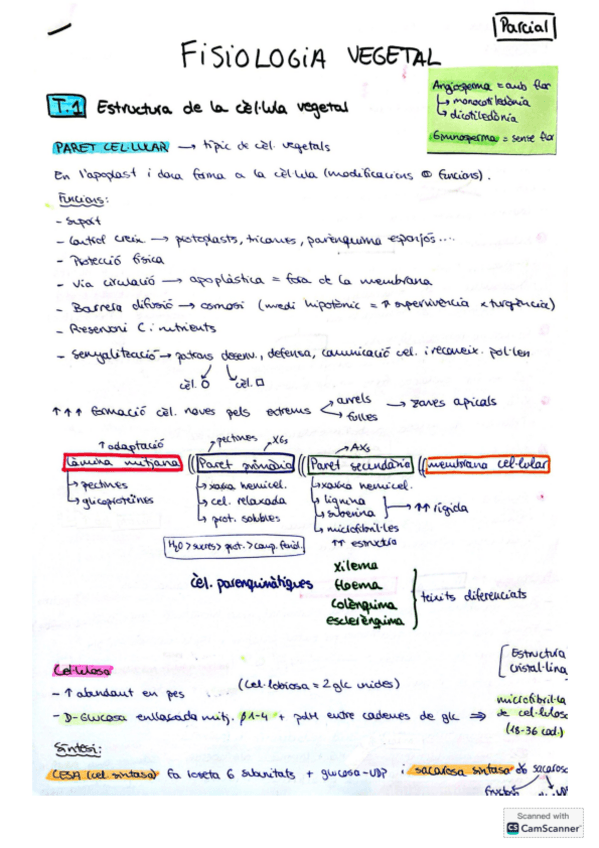 Parcial
FISIOLOGIA VEGETAL
Angiosperma = amb flor
↳ monocotiledònia
↳ dicotiledònia
Gimnosperma = sense flor
T.1 Estructura de la cèl·lula vegetal
PARET CEL·LULAR → típic de cèl. vegetals
En l'apoplast i dona forma a la cèl·lula (modificacions funcions).
Funcions:
- Suport
- Control creix → protoplasts, tricomes, parènquima esponjós....
- Protecció física
- Via circulació → apoplàstica = fora de la membrana
- Barrera difusió → osmosi (medi hipotònic = ↑ supervivència x turgència)
- Reservori C i nutrients
- Senyalització → patrons desenv., defensa, comunicació cèl. i reconeix. pol·len
cèl. O cèl. □
↑↑↑ formació cèl. noves pels extrems arrels → zones apicals
fulles
↑ adaptació pectines XGs AXs
Làmina mitjana || Paret primària || Paret secundària || membrana cel·lular
↳ pectines ↳ xarxa hemicel. ↳ xarxa hemicel.
↳ glicoproteïnes ↳ cel. relaxada ↳ lignina → ↑↑ rígida
↳ prot. solubles ↳ suberina
↳ microfibril·les
H2O > sucres > prot. > comp. fenòl. ↑↑ estructura
cèl. parenquimàtiques
xilema
floema
colènquima
esclerènquima
teixits diferenciats
Cel·lulosa
Estructura
cristal·lina
- ↑ abundant en pes (Cel·lobiosa = 2 glc unides)
- D-Glucosa enllaçada mitj. β1-4 + pdH entre cadenes de glc ⇒ microfibril·la
de cel·lulosa
(18-36 cad.)
Síntesi:
CESA (cel. sintasa) fa roseta 6 subunitats + glucosa-UDP i sacarosa sintasa sacarosa